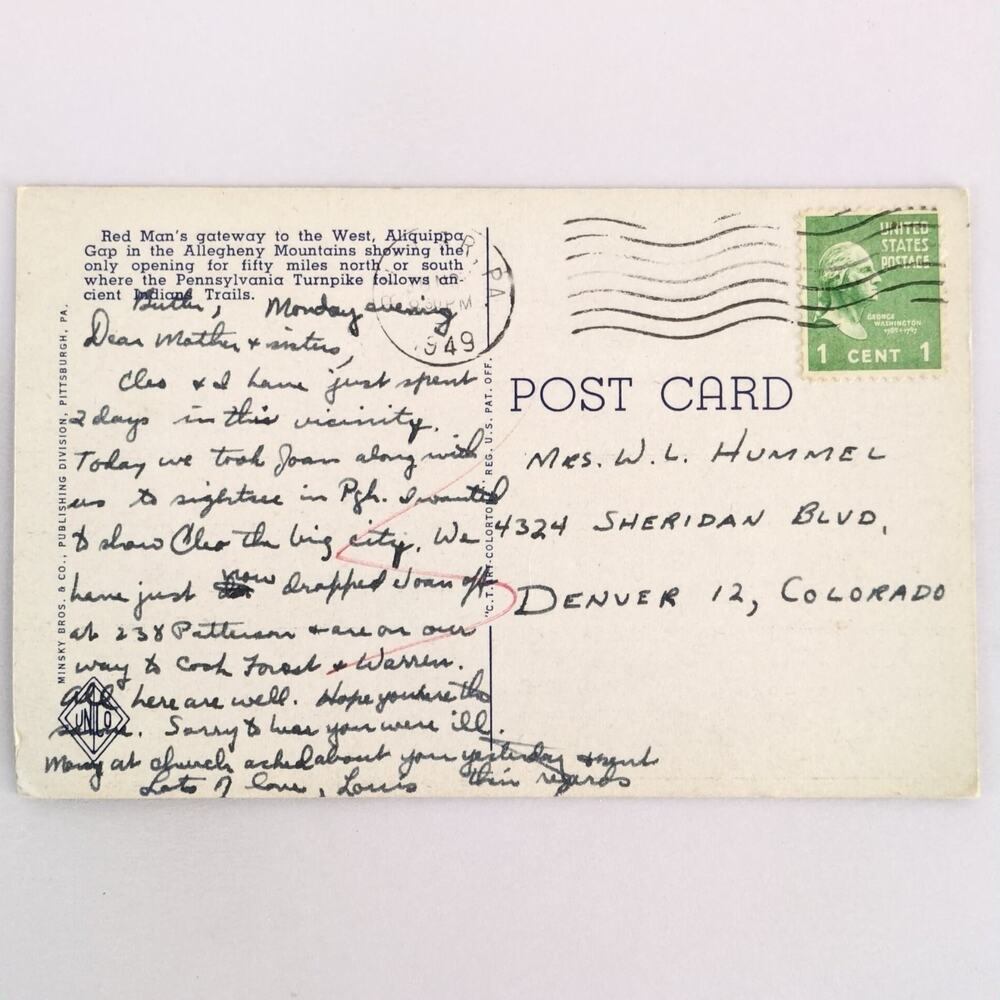 Red Man's gateway to the West, Aliquippa
Gap in the Allegheny Mountains showing the
only opening for fifty miles north or south
where the Pennsylvania Turnpike follows an-
cient Indians Trails.
Butler, Monday evening
Dear Mother & sisters,
Cleo & I have just spent
2 days in this vicinity.
Today we took Joan along with
us to sightsee in Pgh. I wanted
to show Cleo the big city. We
have just now dropped Joan off
at 238 Patterson & are on our
way to Cook Forest & Warren.
All here are well. Hope you're the
same. Sorry to hear you were ill.
Many at church asked about you yesterday & sent
their regards
Lots of love, Louis
MINSKY BROS. & CO., PUBLISHING DIVISION, PITTSBURGH, PA.
"C.T. ART-COLORTONE" REG. U.S. PAT. OFF.
PA
8 30 PM
1949
UNITED
STATES
POSTAGE
GEORGE
WASHINGTON
1789-1797
1 CENT 1
POST CARD
MRS. W. L. HUMMEL
4324 SHERIDAN BLVD,
DENVER 12, COLORADO